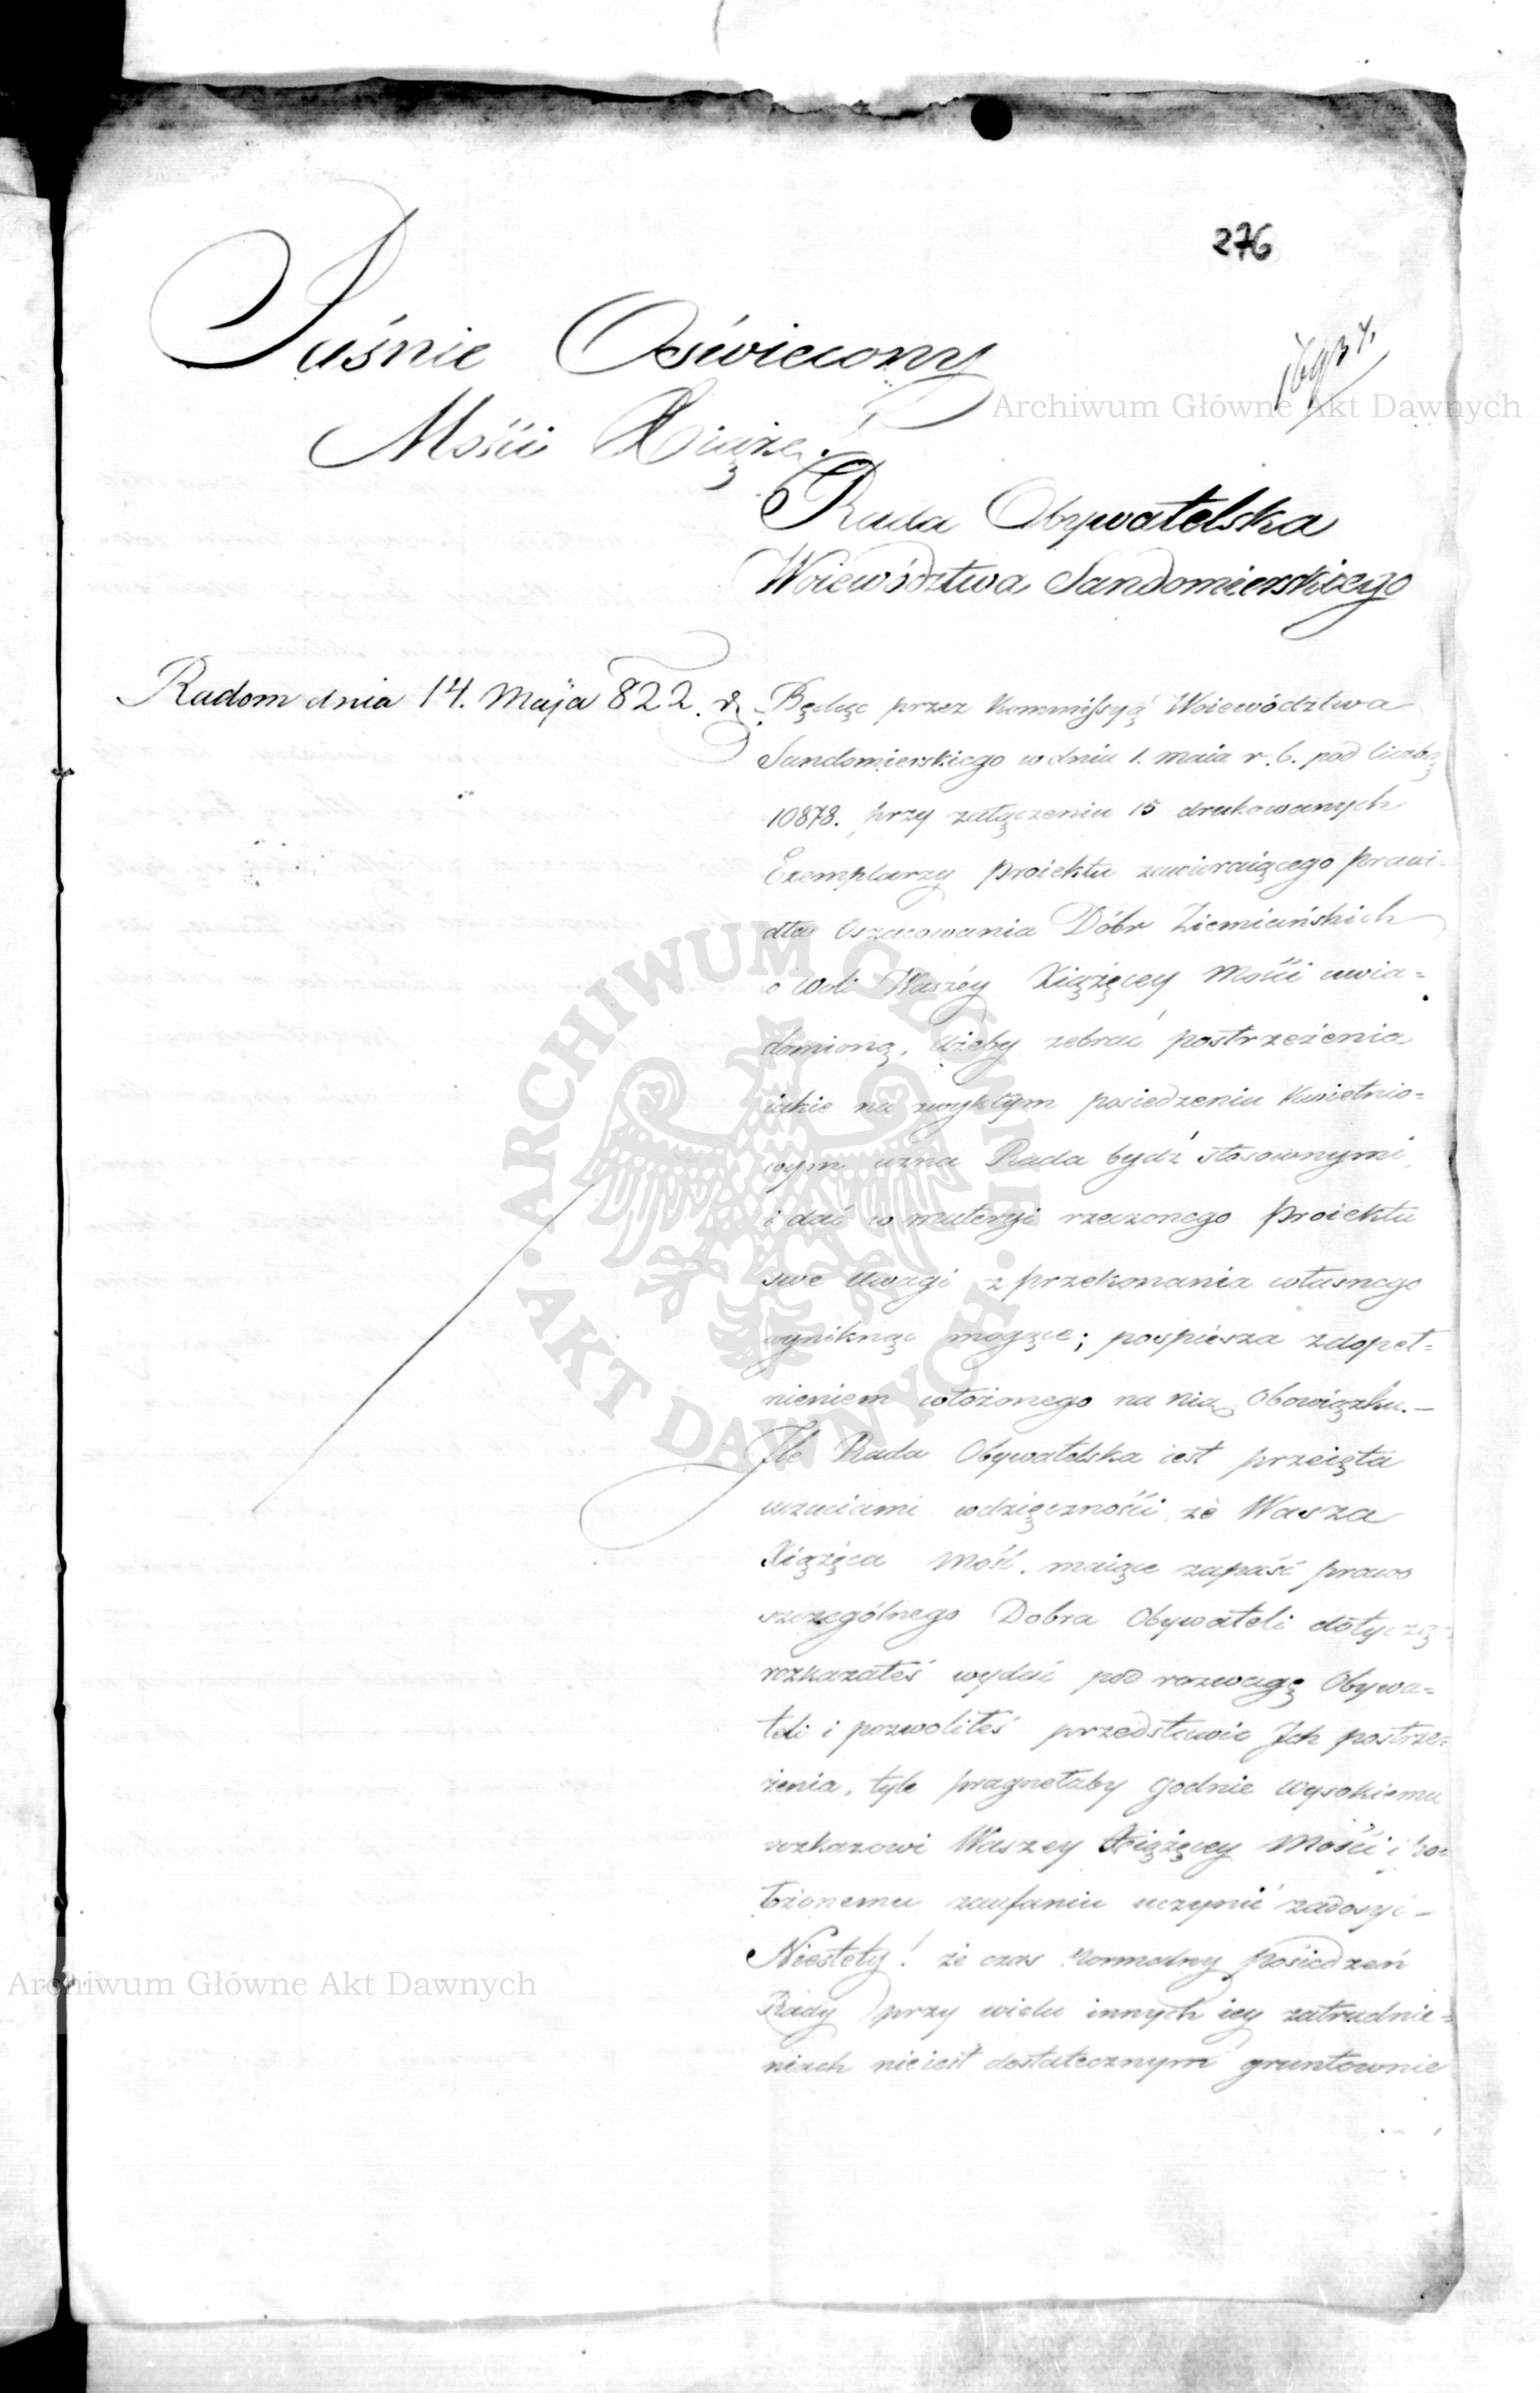 276
Jaśnie Oświecony
Mości Xiąże!
Archiwum Główne Akt Dawnych
Rada Obywatelska
Woiewództwa Sandomierskiego
Radom dnia 14. Maja 822. r.
Będąc przez Kommissyą Woiewództwa
Sandomierskiego w dniu 1. maia r. b. pod liczbą
10878. przy załączeniu 15 drukowanych
Exemplarzy Proiektu zawieraiącego prawi-
dła Oszacowania Dóbr Ziemiańskich
o Woli Waszéy Xiążęcey Mości uwia=
domioną, ażeby zebrać postrzeżenia
iakie na zwykłym posiedzeniu Kwietnio=
wym uzna Rada bydź stosownymi,
i dać w materyi rzeczonego Proiektu
swe Uwagi z przekonania własnego
wyniknąć mogące; pospiesza z dopeł=
nieniem włożonego na nią Obowiązku.—
Ile Rada Obywatelska iest przeięta
uczuciami wdzięczności, że Wasza
Xiążęca Mość, maiące zapaść prawo
szczególnego Dobra Obywateli dotyczą=
rozkazałeś wydać pod rozwagę Obywa=
teli i pozwoliłeś przedstawić Ich postrze=
żenia, tyle pragnełaby godnie wysokiemu
rozkazowi Waszey Xiążęcey Mości i po=
łożonemu zaufaniu uczynić zadosyć —
Niestety! że czas Normalny posiedzeń
Rady przy wielu innych iey zatrudnie=
niach nie iest dostatecznym gruntownie
ARCHIWUM GŁÓWNE
AKT DAWNYCH
Archiwum Główne Akt Dawnych